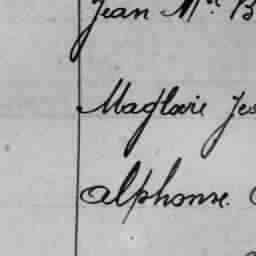 Jean Mie B
Magloire Jos
Alphonse.